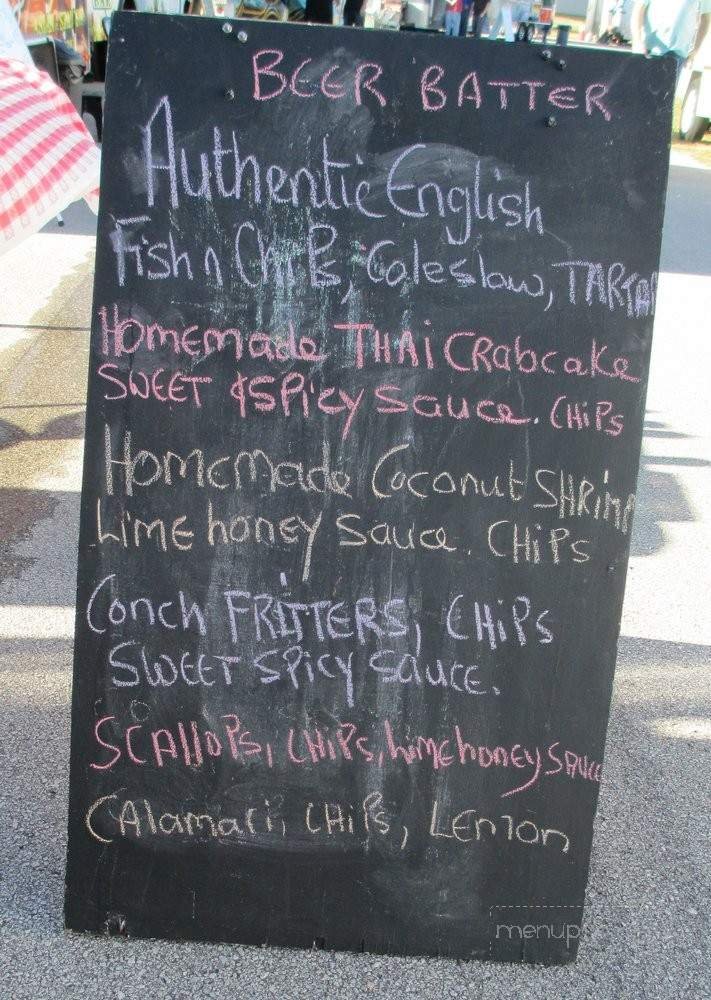 BEER BATTER
Authentic English
Fish n Chips, Coleslaw, TARTAR
Homemade THAi CRabcake
SWEET & SPicy Sauce. CHiPs
Homemade Coconut SHRimp
Lime honey Sauce. CHiPs
Conch FRiTTERS, CHiPs
SWEET SPicy Sauce.
SCAlloPs, CHiPs, Lime honey SAUCE
CAlamari, CHiPs, LEmon
menup